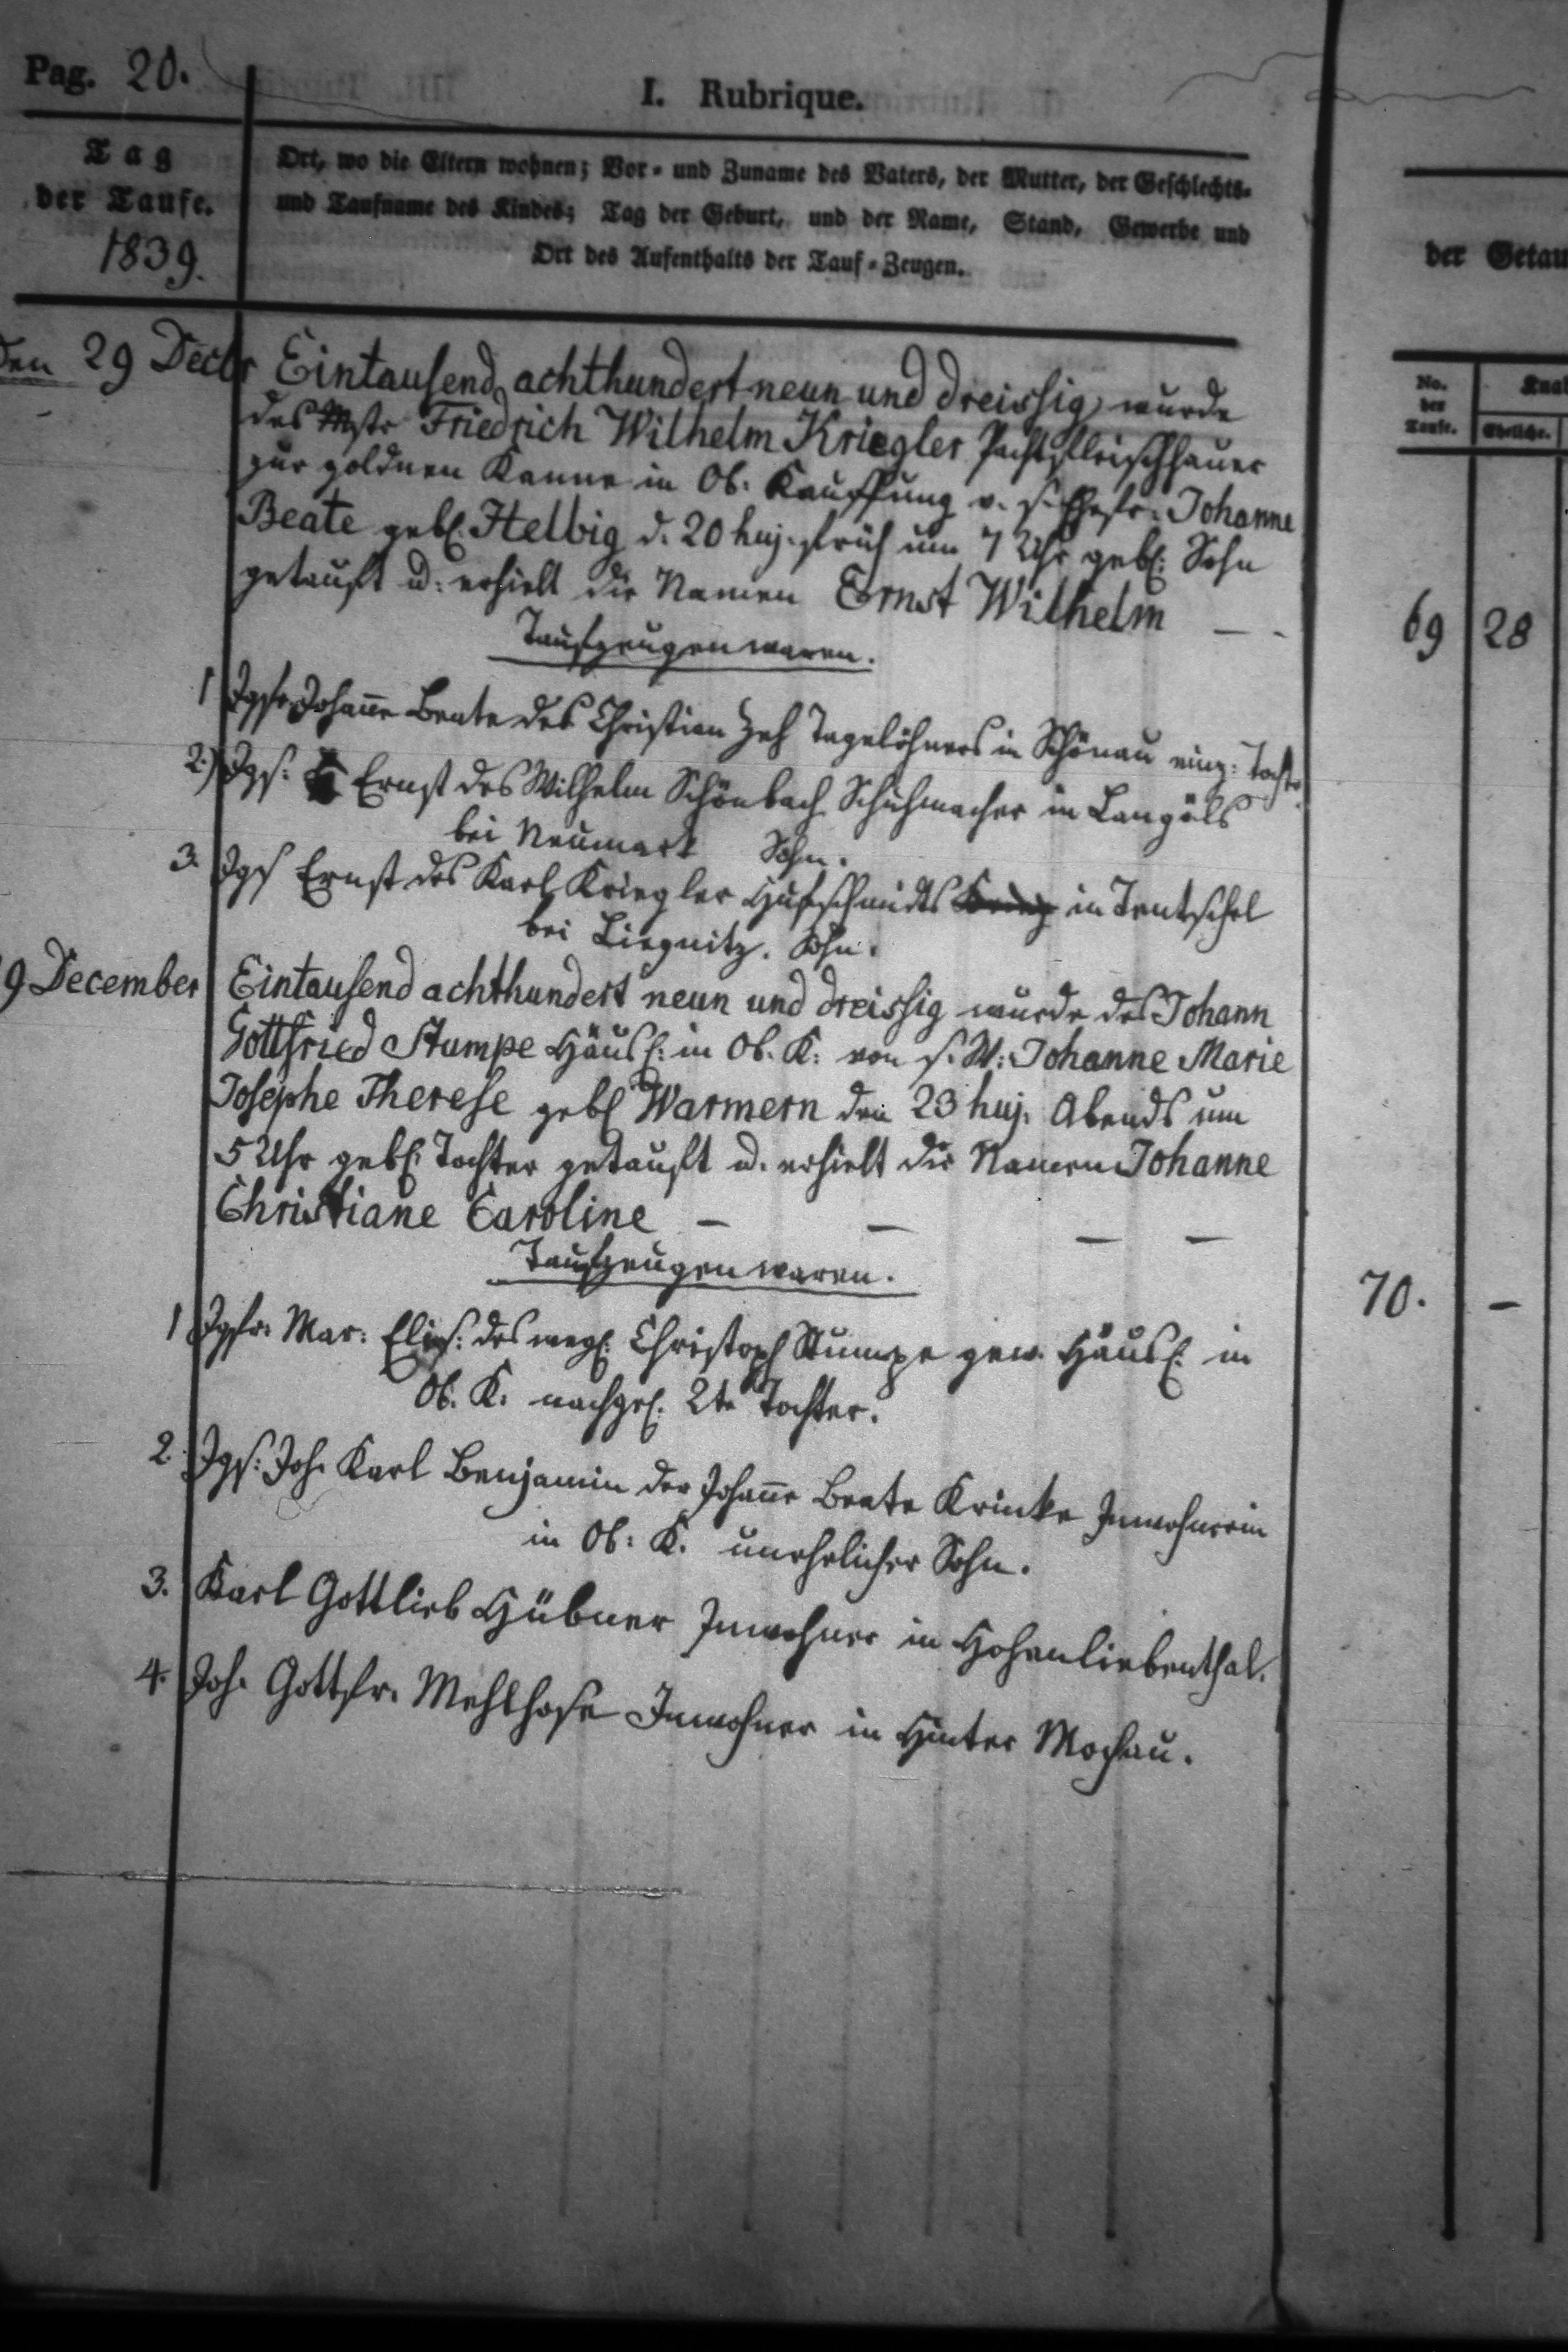 Pag. 20.
I. Rubrique.
Tag
der Taufe.
1839.
Ort, wo die Eltern wohnen; Vor- und Zuname des Vaters, der Mutter, der Geschlechts-
und Taufname des Kindes; Tag der Geburt, und der Name, Stand, Gewerbe und
Ort des Aufenthalts der Tauf-Zeugen.
den 29 Decbr Eintausend achthundert neun und dreissig, wurde
des Mstr Friedrich Wilhelm Kriegler Pachtfleischhauer
zur goldnen Kanne in Ob: Kauffung v. s. Ehefr: Johanne
Beate geb. Helbig d. 20 huj. früh um 7 Uhr geb: Sohn
getauft u: erhielt die Namen Ernst Wilhelm — -
Taufzeugen waren.
1 Jgfr Johanne Beate des Christian Zeh Tagelöhners in Schönau einz: Tochtr.
2.) Jgs: Ernst des Wilhelm Schönbach Schuhmacher in Langöls
bei Neumark Sohn.
3. Jgs Ernst des Karl Kriegler Hufschmidts in Tentschel
bei Liegnitz. Sohn.
9 December Eintausend achthundert neun und dreissig wurde des Johann
Gottfried Stumpe Häusl: in Ob. K: von s. W: Johanne Marie
Josephe Therese geb. Warmern den 23 huj. Abends um
5 Uhr geb: Tochter getauft u. erhielt die Namen Johanne
Christiane Caroline — — — —
Taufzeugen waren.
1 Jgfr. Mar: Elis: des weyl: Christoph Stumpe gew. Häusl: in
Ob. K. nachgel. 2te Tochter.
2. Jgs: Joh. Karl Benjamin der Johanne Beate Krinke Inwohnerin
in Ob: K. unehelicher Sohn.
3. Karl Gottlieb Hübner Inwohner in Hohenliebenthal.
4. Joh. Gottfr. Mehlhose Inwohner in Hinter Mochau.
der Getau
No.
der
Taufe.
Knab
Eheliche.
69 28
70. –